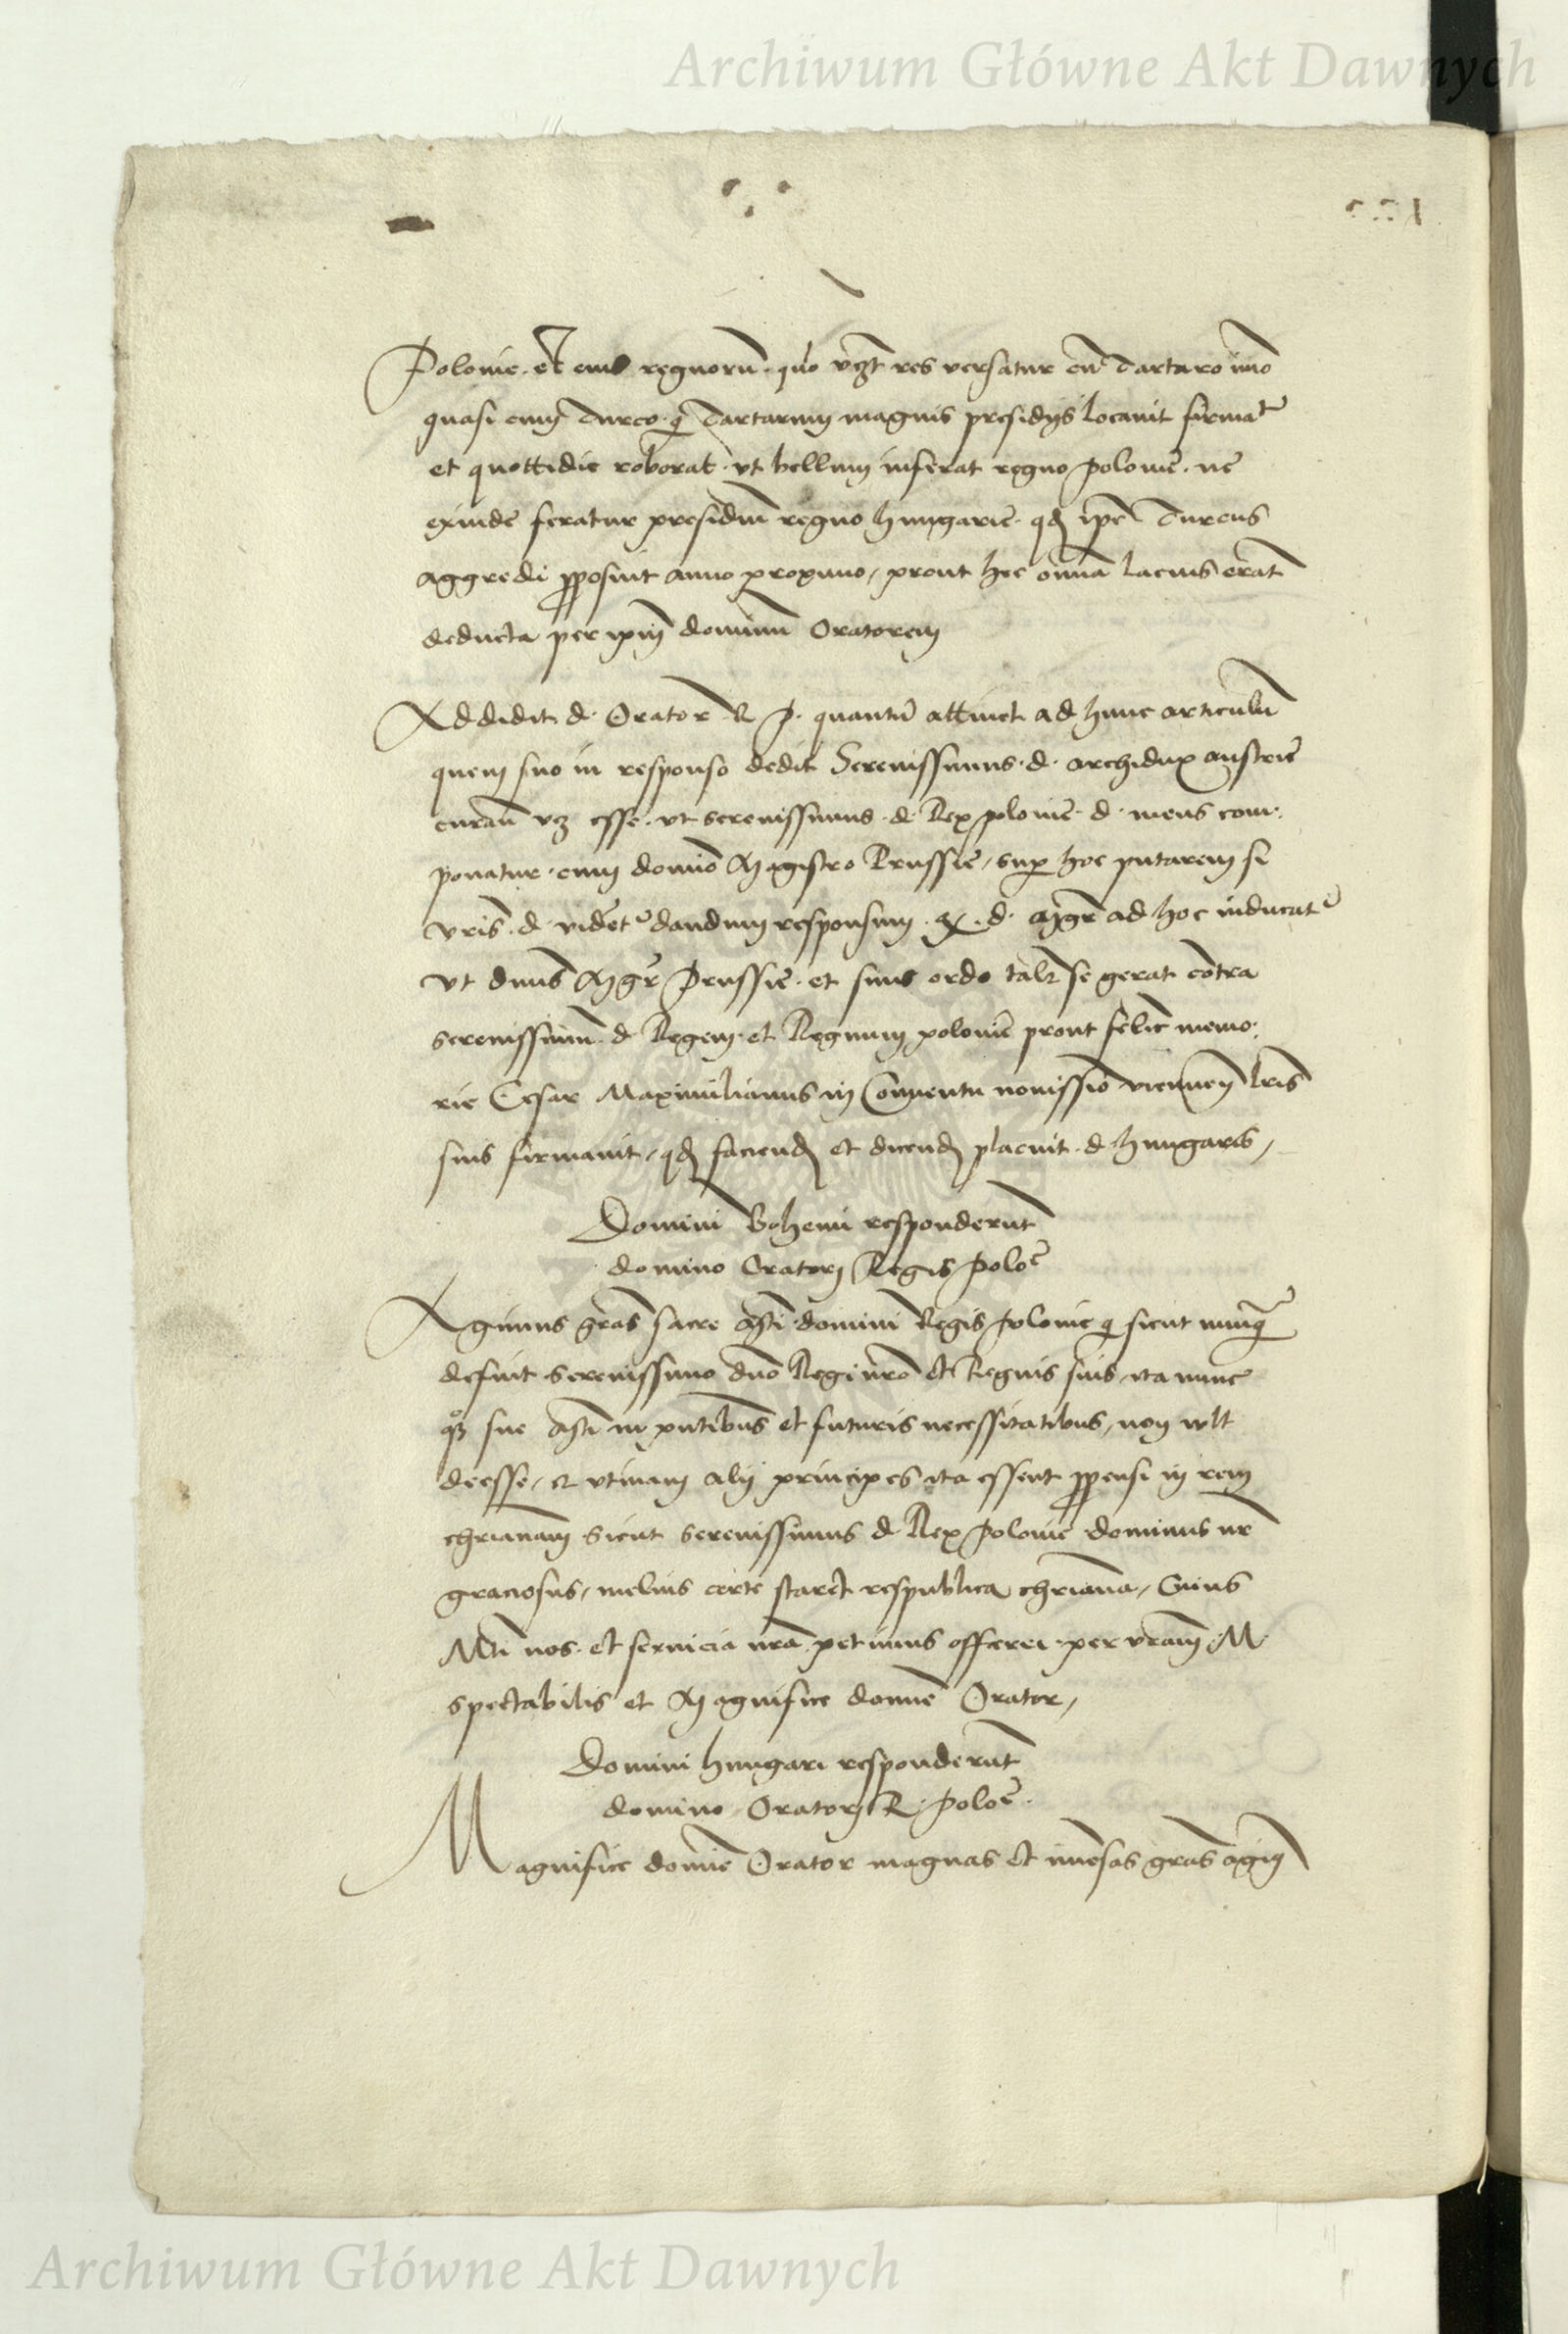 Archiwum Główne Akt Dawnych
Polonie et eius regnorũ quo res versatur cũ Tartaro īmo
quasi cum Turco q̃ Tartarum magnis presidijs locauit firmat
et quottidie roborat vt bellum inferat regno polonie ne
exinde feratur presidiũ regno hungarie qđ ipse Turcus
aggredi proposuit anno proximo / prout hec omnia lacius erãt
deducta per ipm̃ dominũ Oratorem
Addidit d. Orator R. P. quantũ attinet ad hunc articulũ
quem suo in responso dedit Serenissimus d. archidux austrie
curãdũ esse vt serenissimus d. Rex polonie d. meus com
ponatur cum domĩo Magistro Prussie / sup hoc putarem si
vris d. videtur dandum responsum d. ad hoc inducat
vt dnus Mgr̃ Prussie et suus ordo talr̃ se gerat cõtra
serenissimũ d Regem et Regnum polonie prout felic memo
rie Cesar Maximilianus in Conuentu nouissĩo viennen̄ lrĩs
suis firmauit / qđ faciend̄ et dicend̄ placuit d hungaris /
Domini Bohemi responderũt
domino Oratori Regis Polo͠e
Agimus grãs sacre Mti domini Regis Polonie q̃ sicut nunq̃
defuit serenissimo dno Regi nro et Regnis suis ita nunc
sue Mti in pñtibus et futuris necessitatibus / non vult
deesse / et vtinam alij principes ita essent propensi in rem
chrianam sicut serenissimus d Rex Polonie dominus nr̃
graciosus / melius certe staret respublica chriana / Cuius
Mti nos et seruicia nrã petimus offerri per vram M
spectabilis et Magnifice domine Orator /
Domini hungari responderũt
domino Oratori R. Polo͠e
Magnifice domine Orator magnas et imẽsas grãs agim̃
Archiwum Główne Akt Dawnych